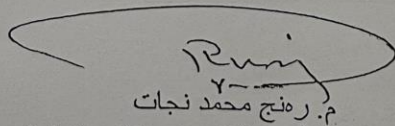 م. رەنج محمد نجات